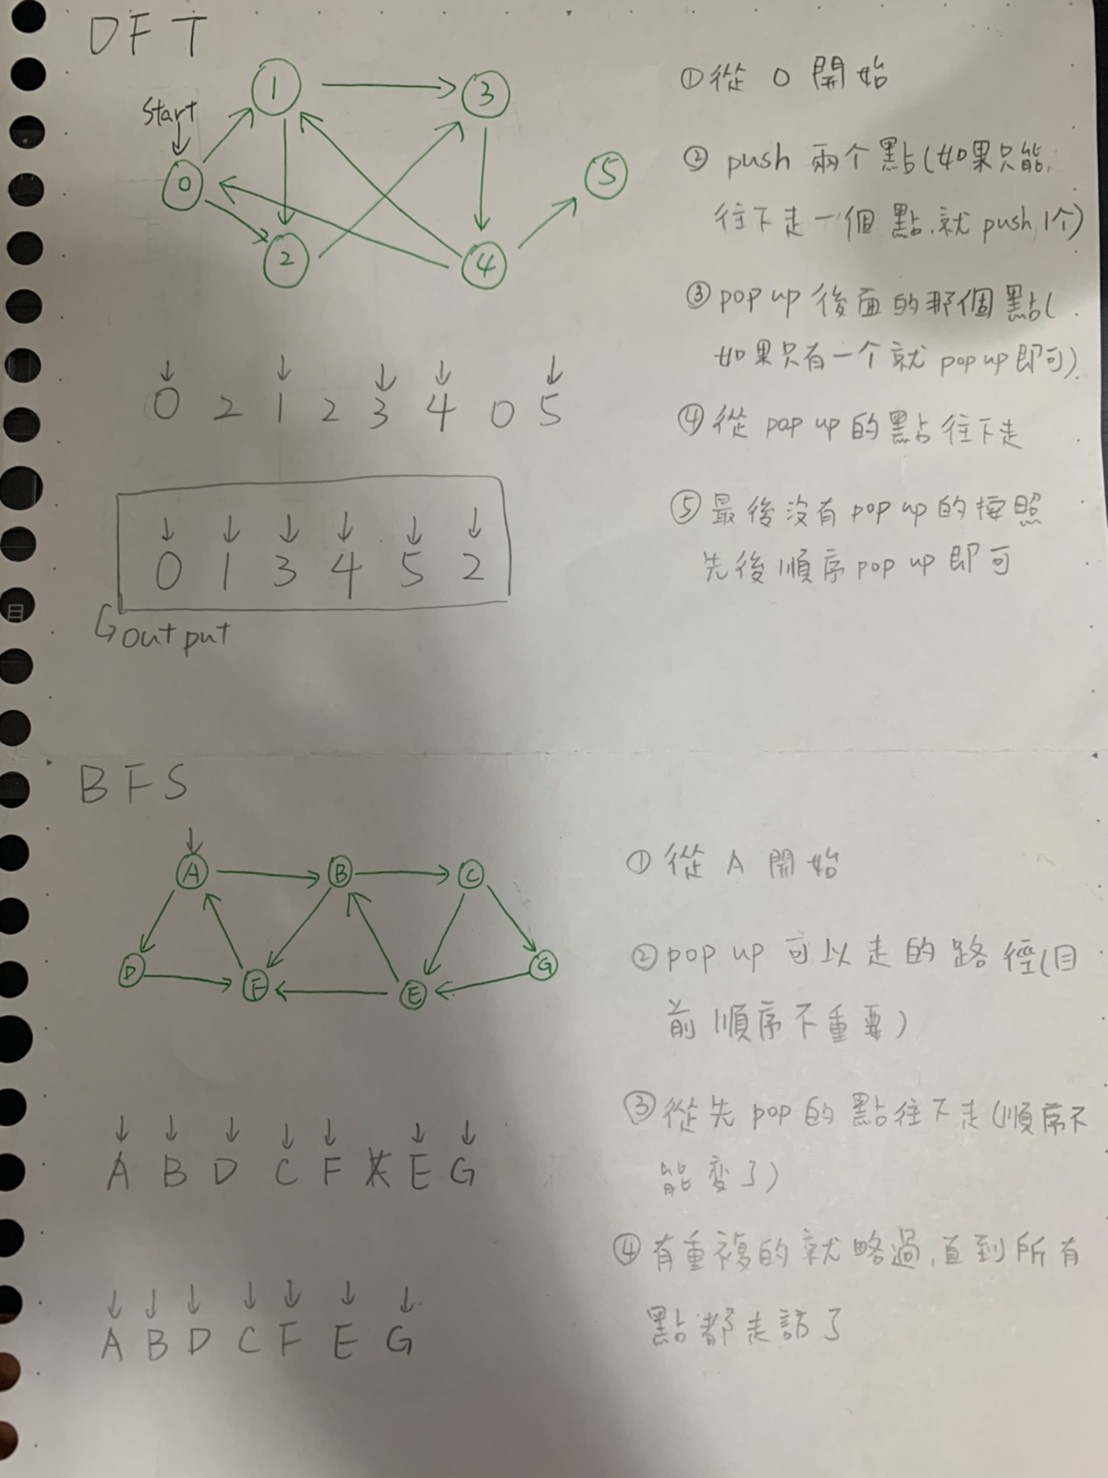 DFT
Start
1
3
0
5
2
4
0 2 1 2 3 4 0 5
0 1 3 4 5 2
output
①從 0 開始
② push 兩个點(如果只能
往下走一個點.就 push 1个)
③pop up 後面的那個點(
如果只有一个就 pop up 即可)
④從 pop up 的點往下走
⑤最後沒有 pop up 的按照
先後順序 pop up 即可
目
BFS
A
B
C
D
F
E
G
A B D C F E G
A B D C F E G
①從 A 開始
②pop up 可以走的路徑(目
前順序不重要)
③從先 pop 的點往下走(順序不
能变了)
④有重複的就略過,直到所有
點都走訪了